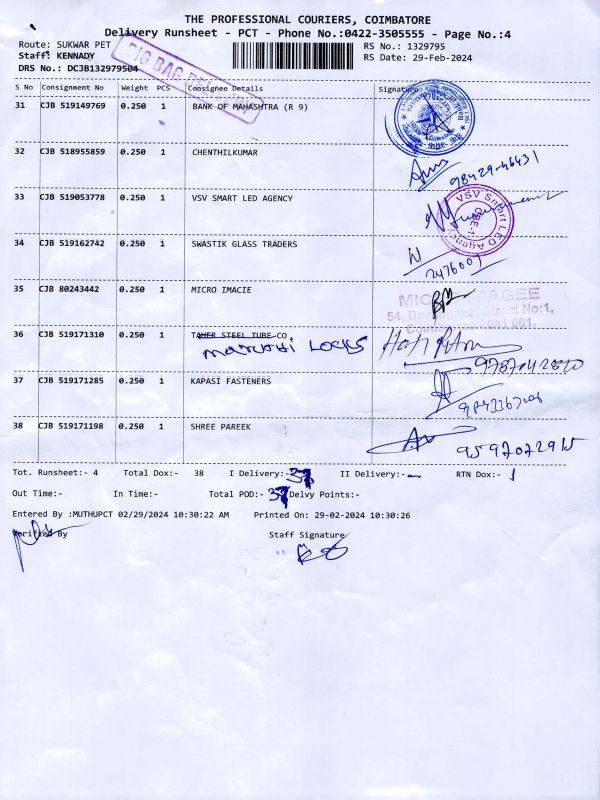 THE PROFESSIONAL COURIERS, COIMBATORE
Delivery Runsheet - PCT - Phone No.:0422-3505555 - Page No.:4
Route: SUKWAR PET RS No.: 1329795
Staff: KENNADY RS Date: 29-Feb-2024
DRS No.: DCJB132979504
BIG BAG
S No Consignment No Weight PCS Consignee Details Signature
31 CJB 519149769 0.250 1 BANK OF MAHASHTRA (R 9)
32 CJB 518955859 0.250 1 CHENTHILKUMAR
98429-46431
33 CJB 519053778 0.250 1 VSV SMART LED AGENCY
VSV Smart LED Agency
34 CJB 519162742 0.250 1 SWASTIK GLASS TRADERS
2476001
35 CJB 80243442 0.250 1 MICRO IMACIE
36 CJB 519171310 0.250 1 TAHER STEEL TUBE CO
MARUTHI LOCKS
37 CJB 519171285 0.250 1 KAPASI FASTENERS
38 CJB 519171198 0.250 1 SHREE PAREEK
9597022915
Tot. Runsheet:- 4 Total Dox:- 38 I Delivery:-37 II Delivery:- RTN Dox:- 1
Out Time:- In Time:- Total POD:- 37 Delvy Points:-
Entered By :MUTHUPCT 02/29/2024 10:30:22 AM Printed On: 29-02-2024 10:30:26
Verified By Staff Signature